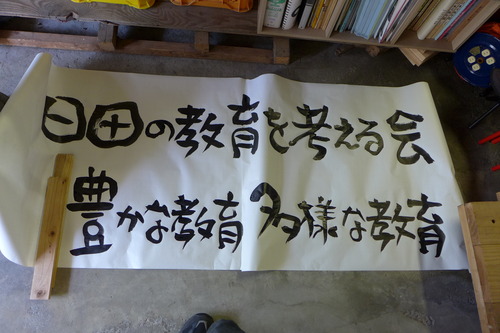 日田の教育を考える会
豊かな教育 多様な教育